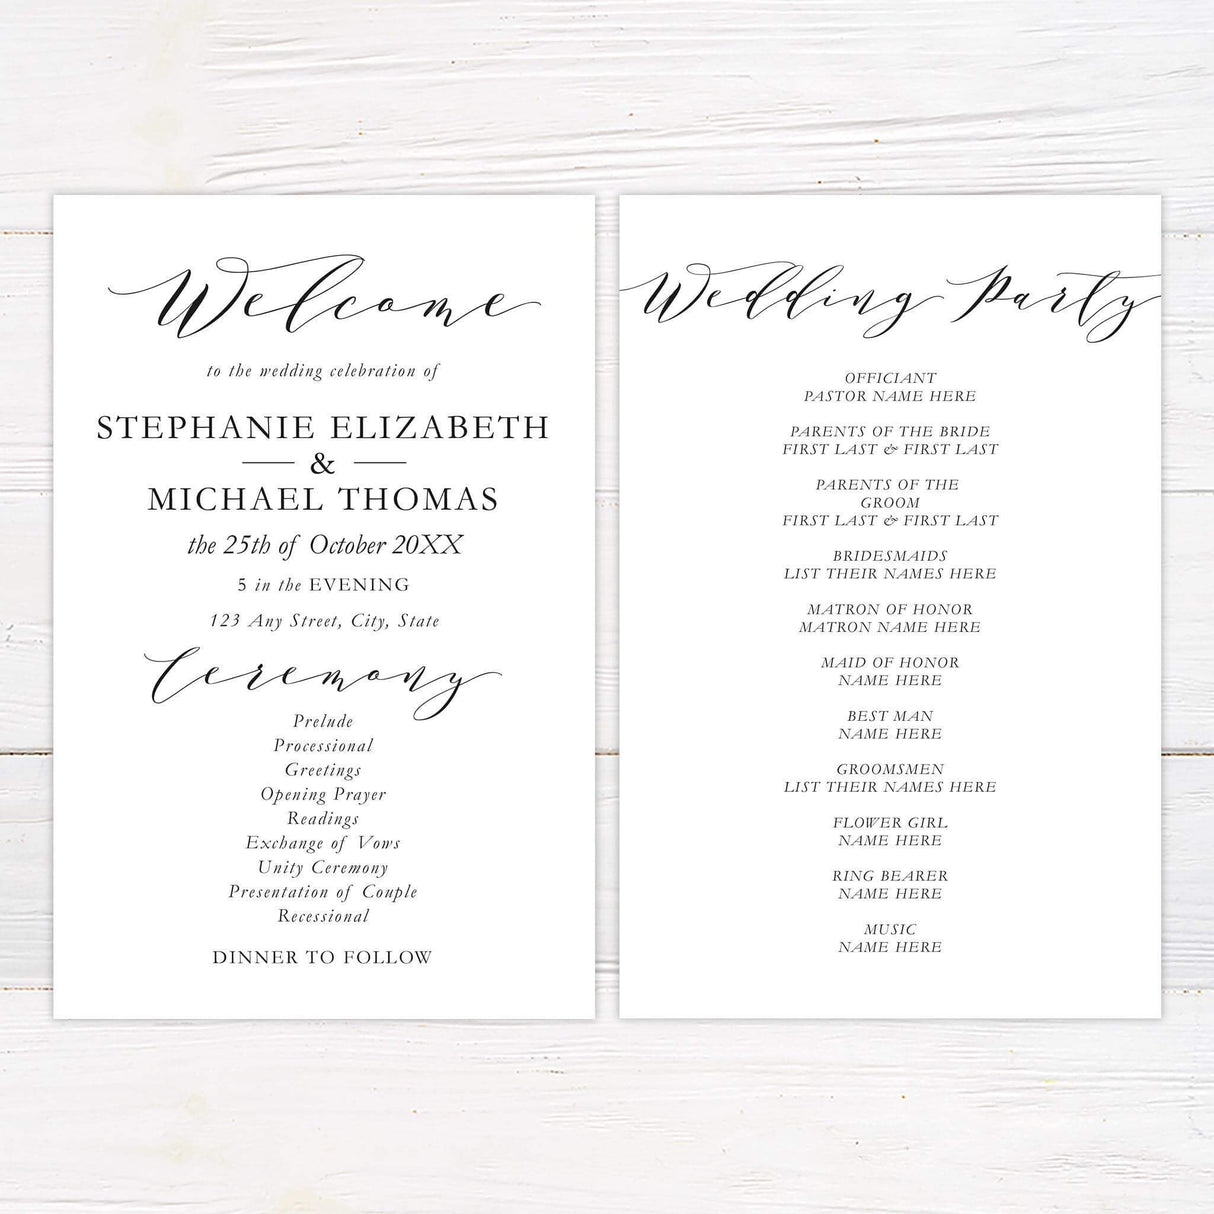 Welcome
to the wedding celebration of
STEPHANIE ELIZABETH
&
MICHAEL THOMAS
the 25th of October 20XX
5 in the EVENING
123 Any Street, City, State
Ceremony
Prelude
Processional
Greetings
Opening Prayer
Readings
Exchange of Vows
Unity Ceremony
Presentation of Couple
Recessional
DINNER TO FOLLOW
Wedding Party
OFFICIANT
PASTOR NAME HERE
PARENTS OF THE BRIDE
FIRST LAST & FIRST LAST
PARENTS OF THE
GROOM
FIRST LAST & FIRST LAST
BRIDESMAIDS
LIST THEIR NAMES HERE
MATRON OF HONOR
MATRON NAME HERE
MAID OF HONOR
NAME HERE
BEST MAN
NAME HERE
GROOMSMEN
LIST THEIR NAMES HERE
FLOWER GIRL
NAME HERE
RING BEARER
NAME HERE
MUSIC
NAME HERE